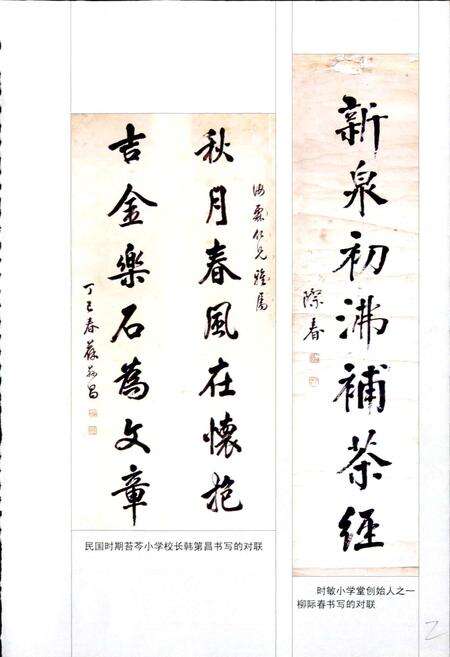 新泉初沸補茶經
際春
海粟仁兄雅屬
秋月春風在懷抱
吉金樂石為文章
丁巳春 昌
民国时期苔芩小学校长韩第昌书写的对联
时敏小学堂创始人之一
柳际春书写的对联
2